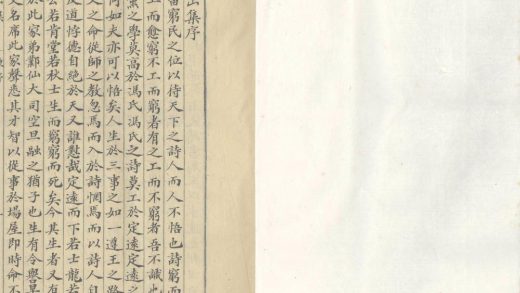 集序
留窮氏之位以待天下之詩人而人不悟也詩窮而
工而愈窮不工而窮者有之工而不窮者吾不識也
黨之學莫高於馮氏馮氏之詩莫工於定遠定遠之
何如夫亦可以悟矣人生於三事之如一遵王之路
父之命從師之教忽焉而入於詩惘焉而以詩人自
反道悖德自絕於天又誰懟哉定遠而下若士龍若
公若肯堂若秋士生而窮窮而死矣今其生者又有
於此家弟鄴仙大司空旦融之猶子也生有令譽早
又名席此家聲悉其才智以從事於場屋即時命不